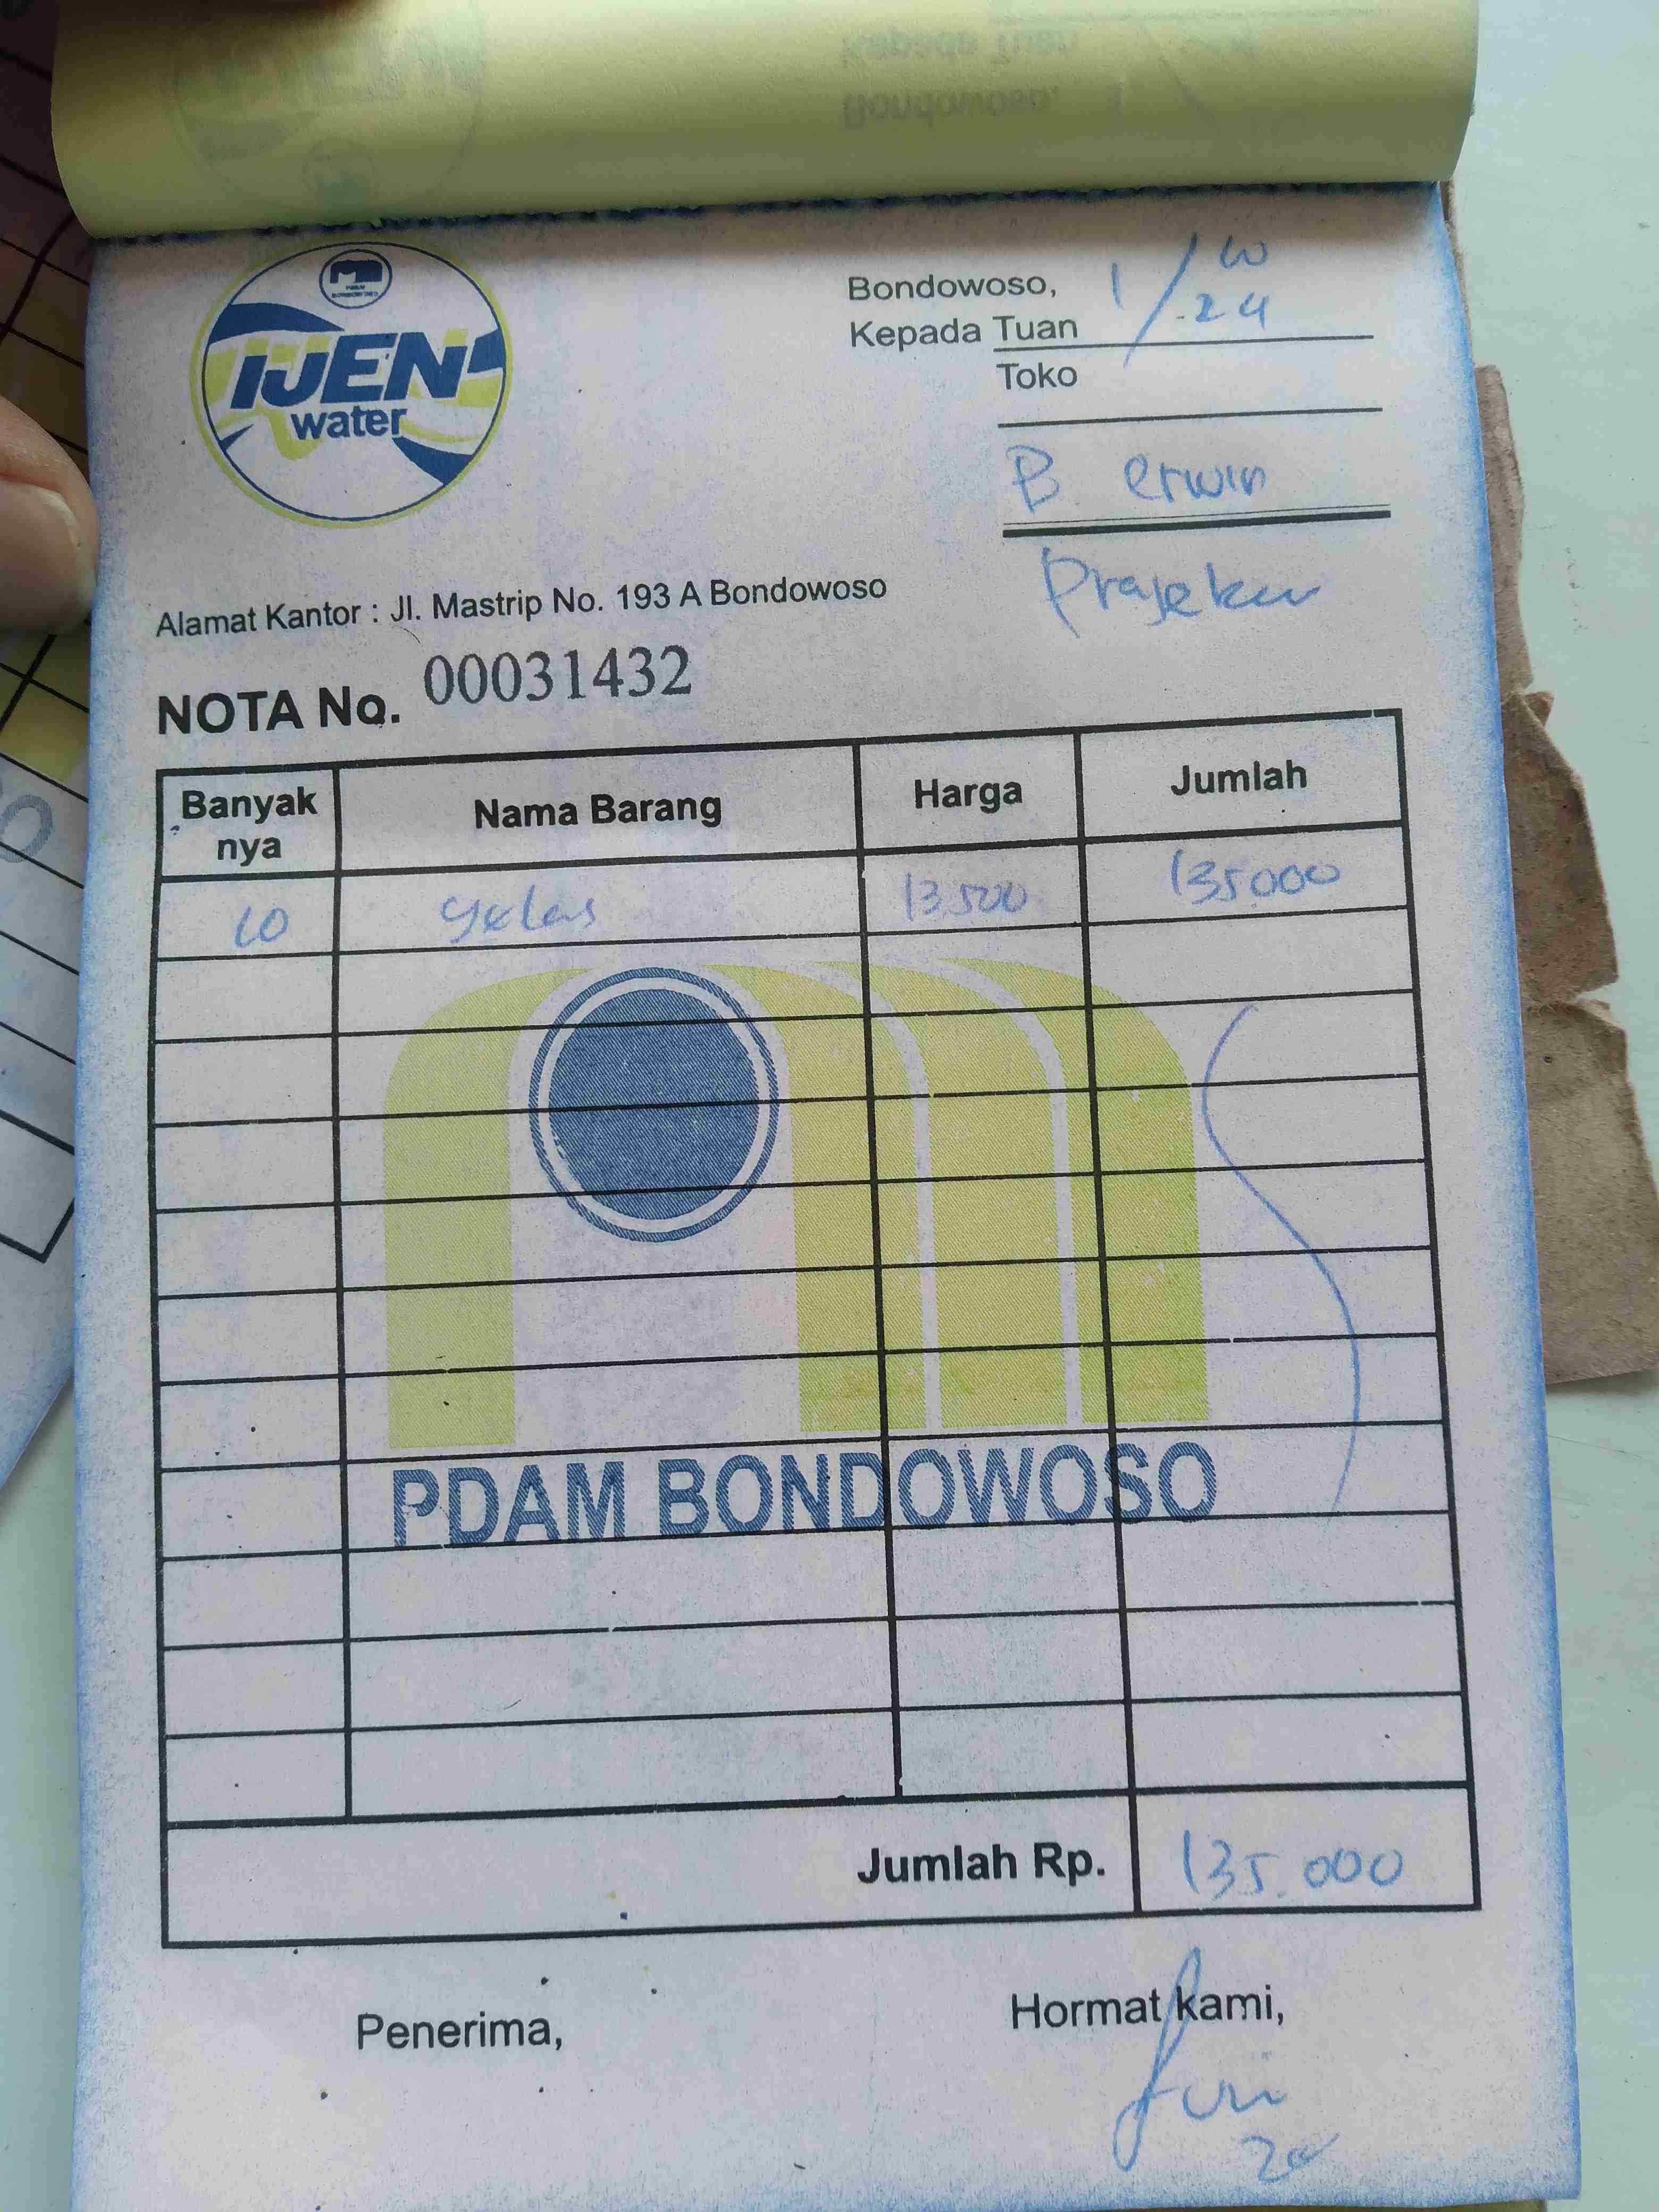 IJEN
water
Bondowoso, 1/10
Kepada Tuan .24
Toko
B. erwin
Prajekan
Alamat Kantor : Jl. Mastrip No. 193 A Bondowoso
NOTA No. 00031432
Banyak nya Nama Barang Harga Jumlah
10 gelas 13.500 135.000
PDAM BONDOWOSO
Jumlah Rp. 135.000
Penerima, Hormat kami,